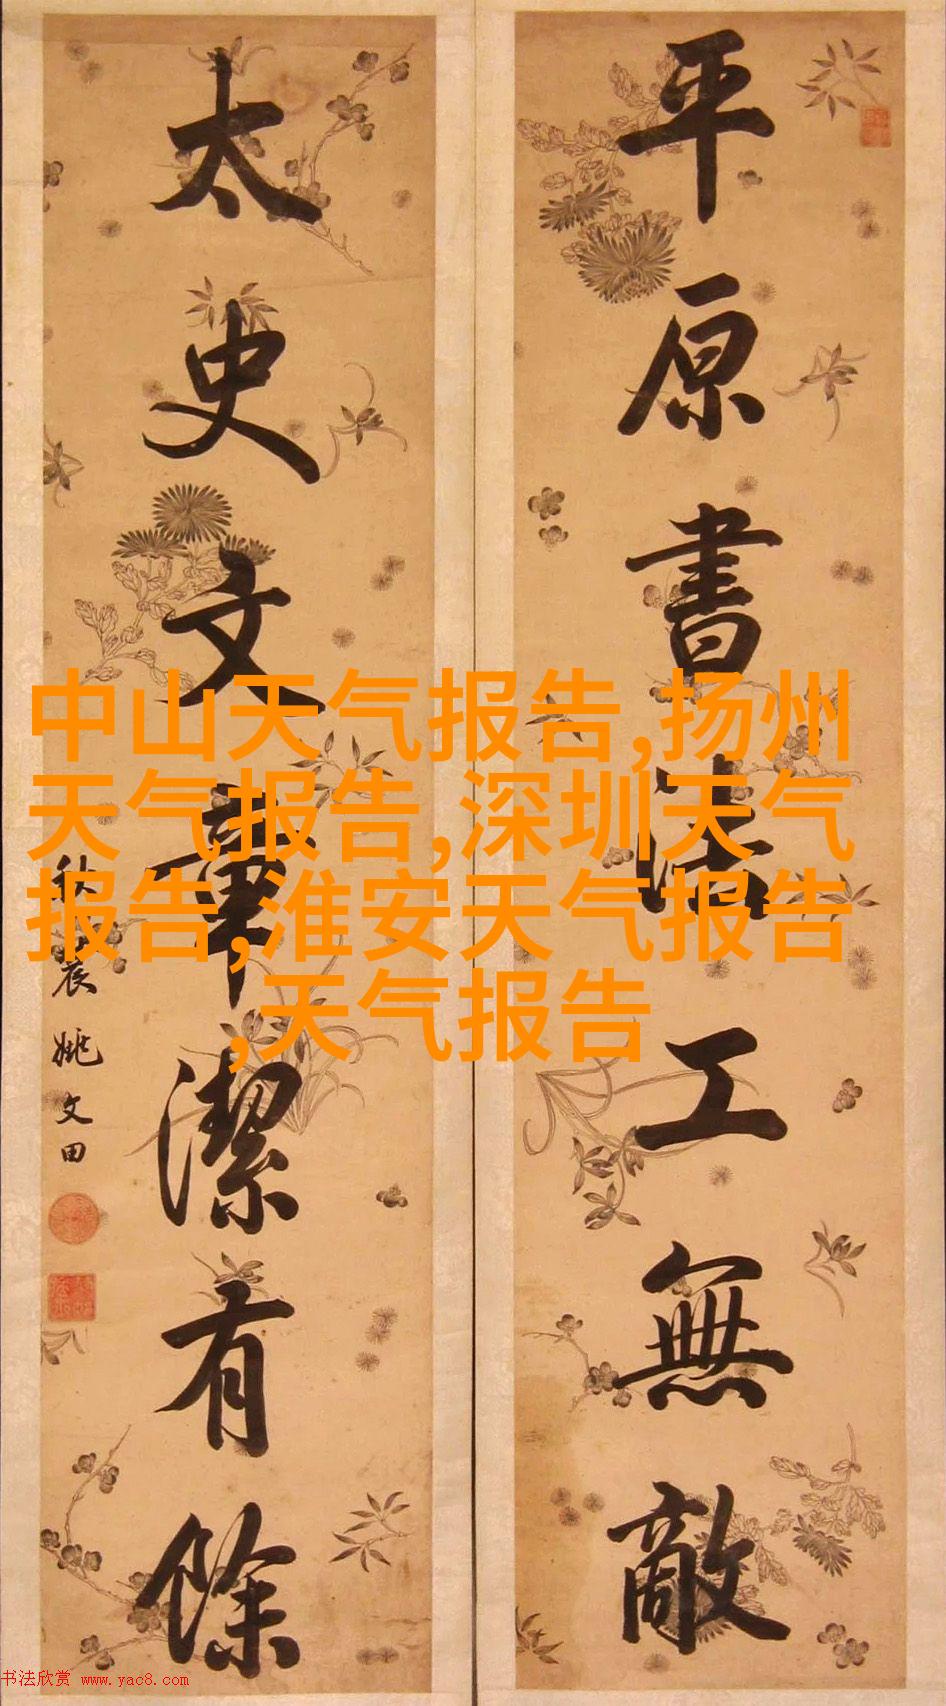 平原書法工無敵
太史文章潔有餘
秋農姚文田
中山天气报告,扬州
天气报告,深圳天气
报告,淮安天气报告
,天气报告
书法欣赏 www.yac8.com